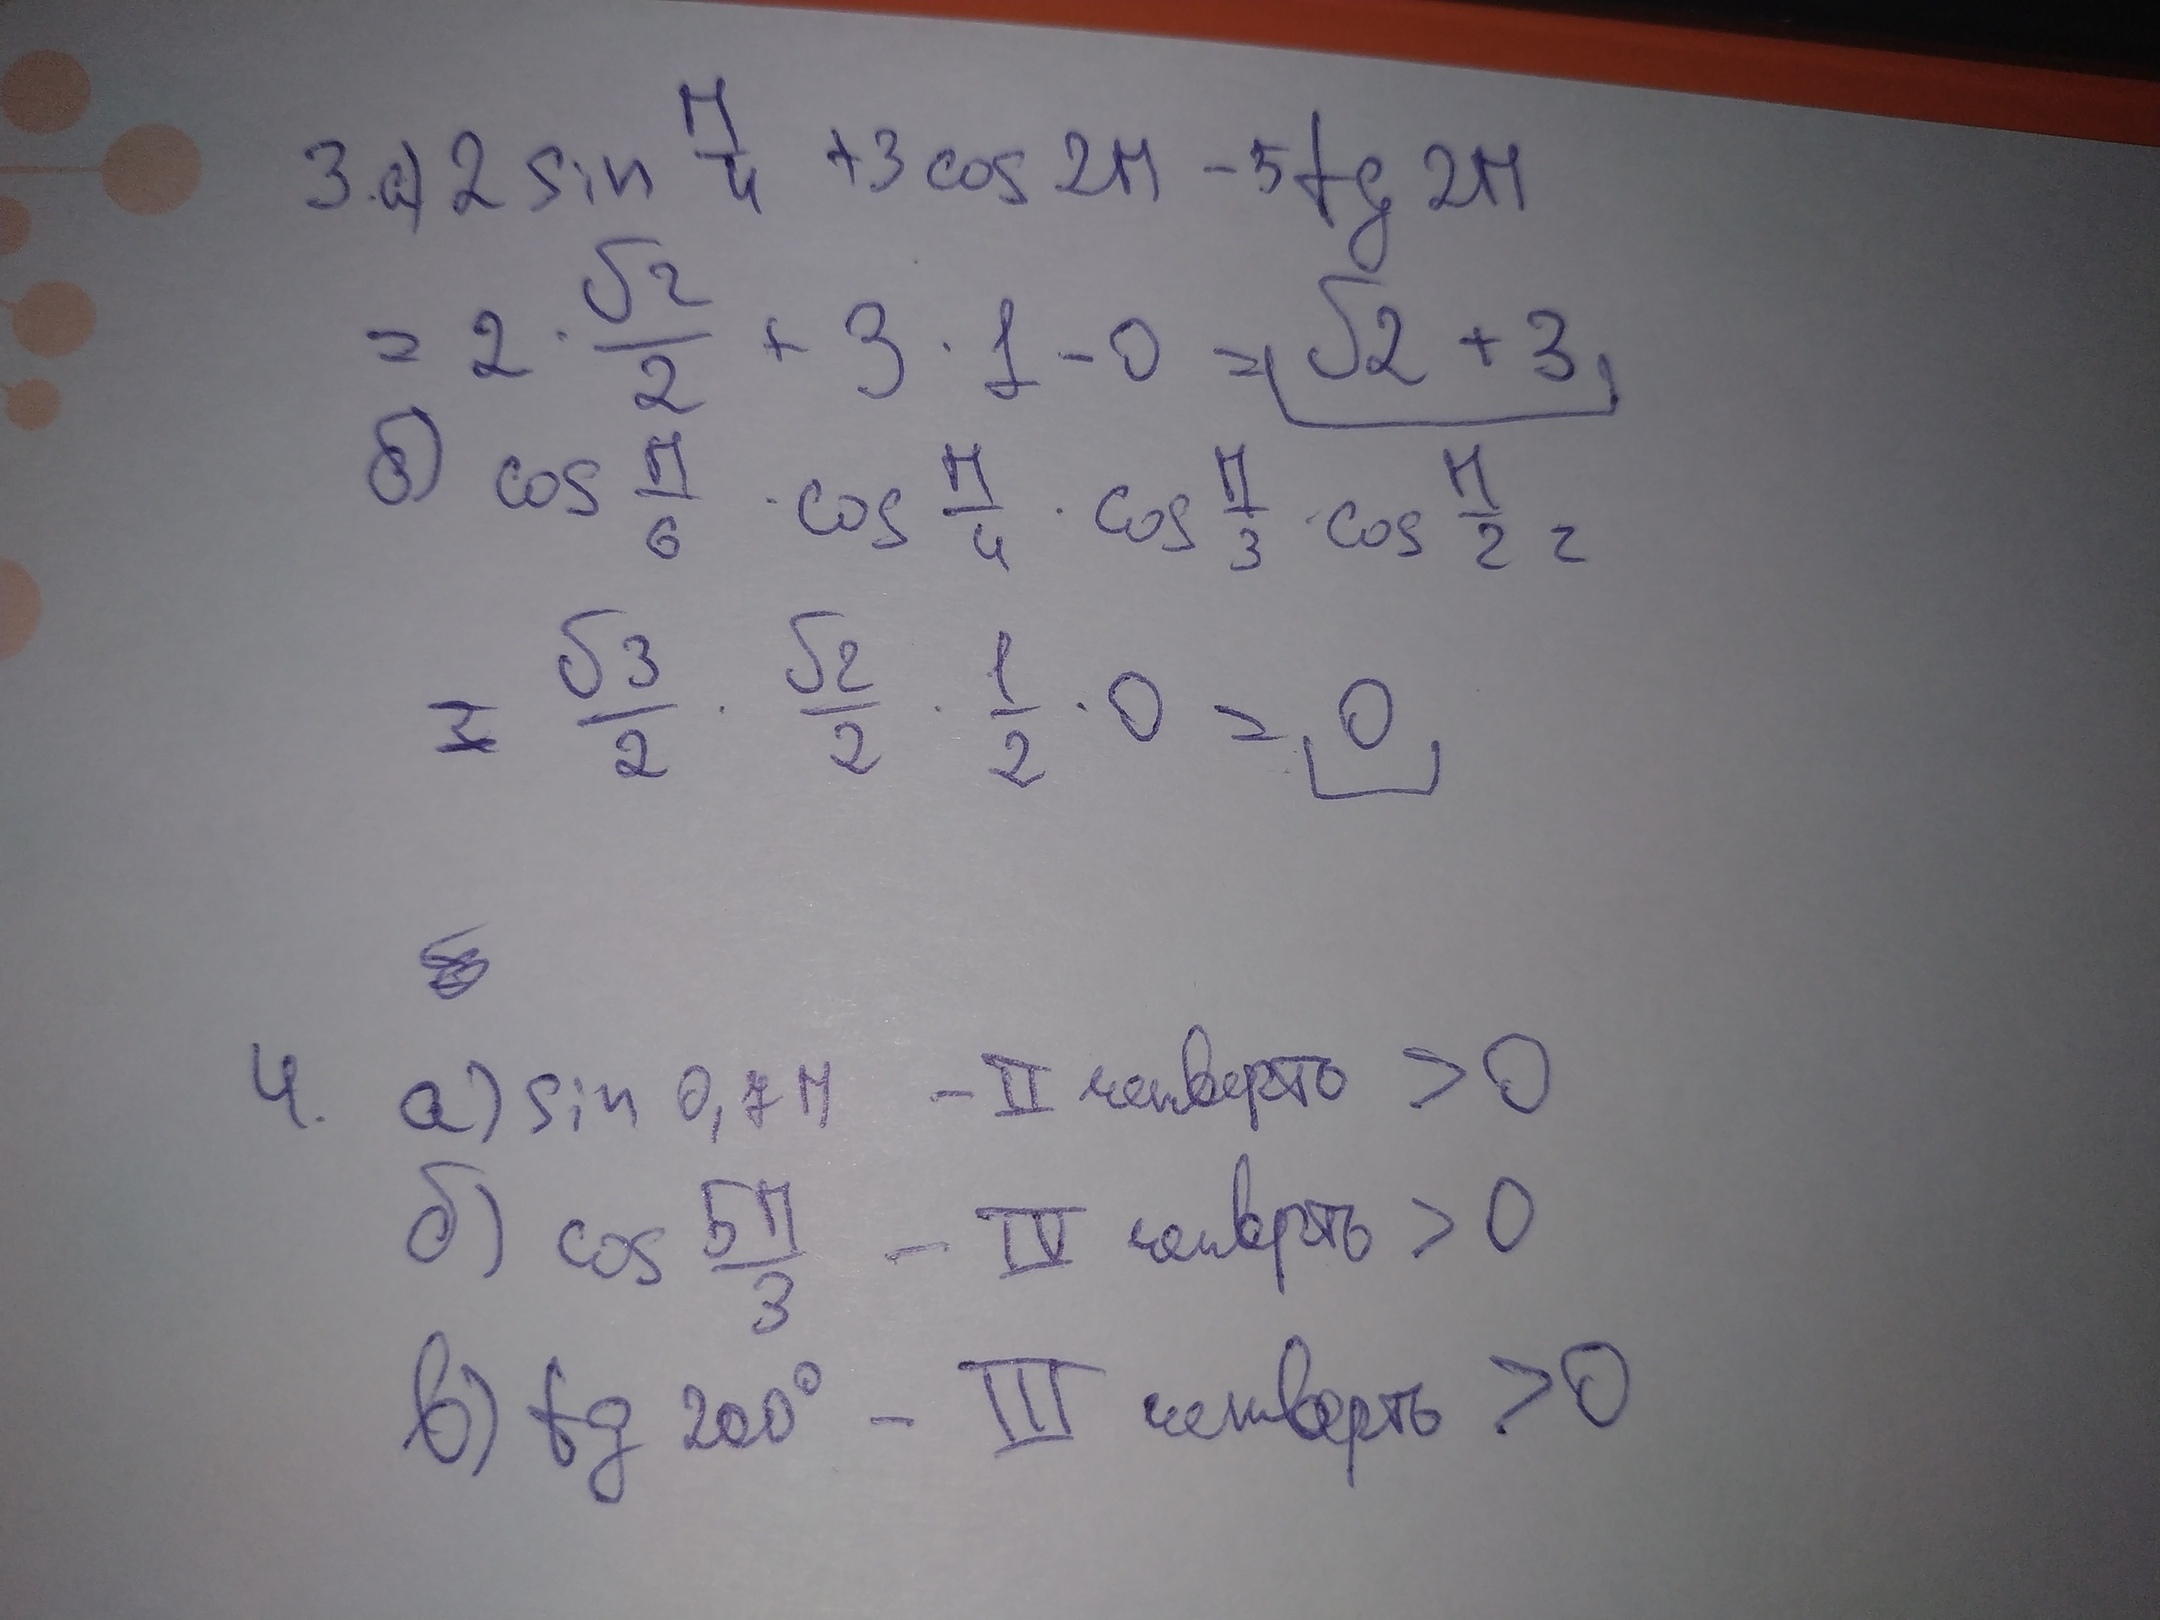 3.а) 2 sin π/4 + 3 cos 2π - 5 tg 2π
= 2 · √2/2 + 3 · 1 - 0 = √2 + 3
б) cos π/6 · cos π/4 · cos π/3 · cos π/2 =
= √3/2 · √2/2 · 1/2 · 0 = 0
4. а) sin 0,7π - II четверть > 0
б) cos 5π/3 - IV четверть > 0
в) tg 200° - III четверть > 0